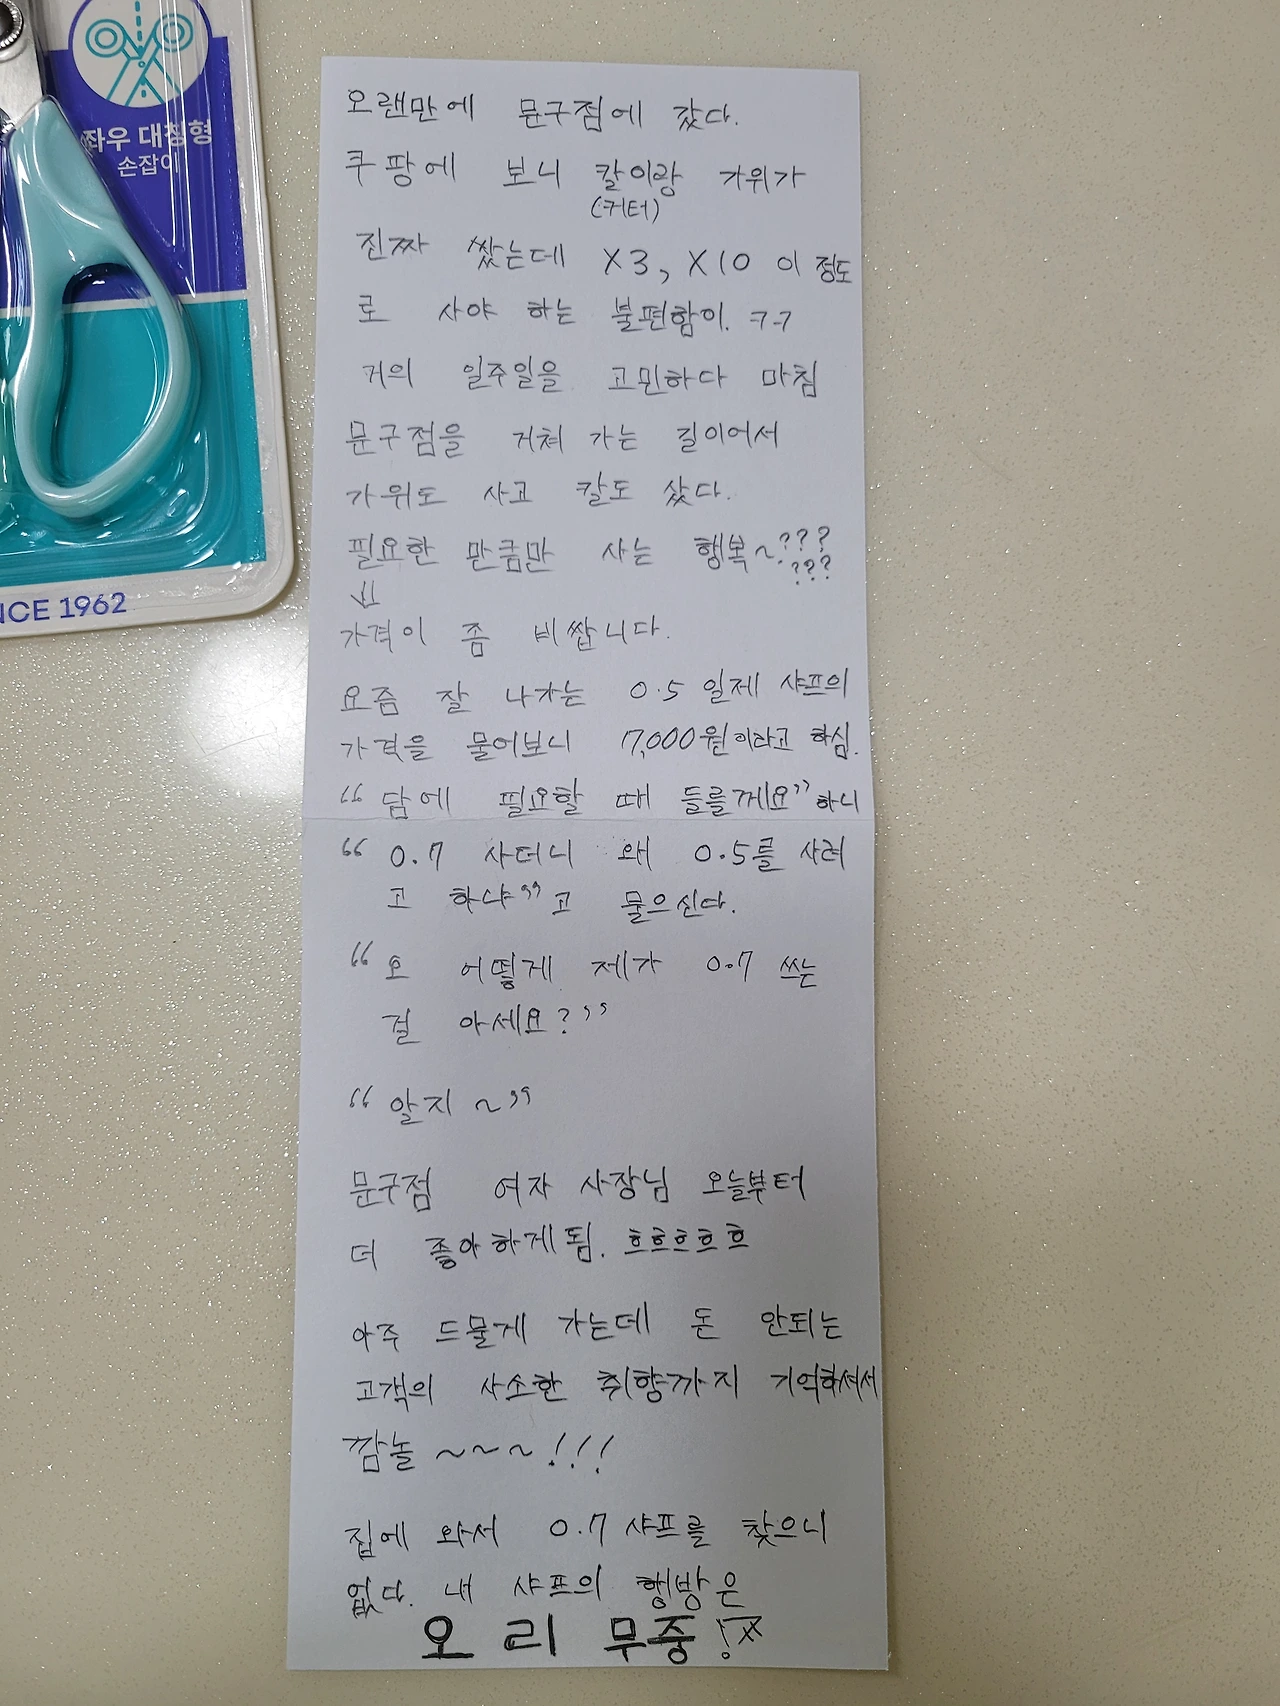 좌우 대칭형
손잡이
NCE 1962
오랜만에 문구점에 갔다.
쿠팡에 보니 칼이랑 가위가
(커터)
진짜 쌌는데 X3, X10 이 정도
로 사야 하는 불편함이. ㅋㅋ
거의 일주일을 고민하다 마침
문구점을 거쳐 가는 길이어서
가위도 사고 칼도 샀다.
필요한 만큼만 사는 행복~???
???
가격이 좀 비쌉니다.
요즘 잘 나가는 0.5 일제 샤프의
가격을 물어보니 17,000원이라고 하심.
“담에 필요할 때 들를께요”하니
“0.7 사더니 왜 0.5를 사려
고 하냐”고 물으신다.
“오 어떻게 제가 0.7 쓰는
걸 아세요?”
“알지~”
문구점 여자 사장님 오늘부터
더 좋아하게됨. 흐흐흐흐흐
아주 드물게 가는데 돈 안되는
고객의 사소한 취향까지 기억하셔서
깜놀~~~!!!
집에 와서 0.7 샤프를 찾으니
없다. 내 샤프의 행방은
오리무중!